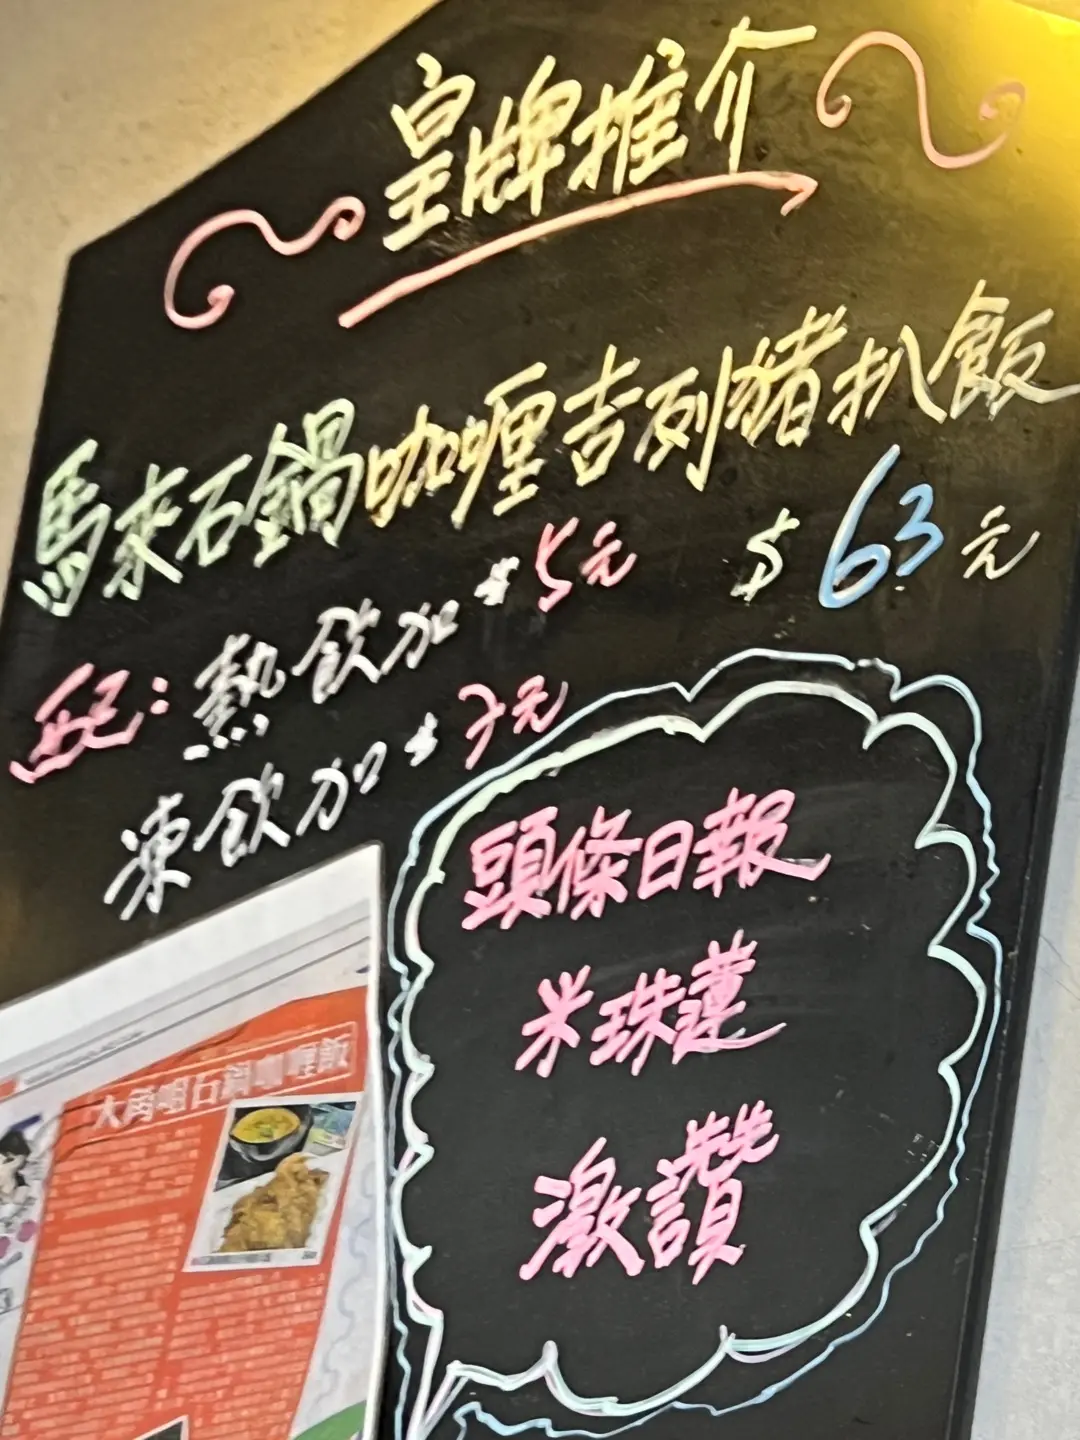 皇牌推介
馬來石鍋咖喱吉列豬扒飯
$63元
配：熱飲加$5元
凍飲加$7元
頭條日報
米珠蓮
激讚
大角咀石鍋咖喱飯